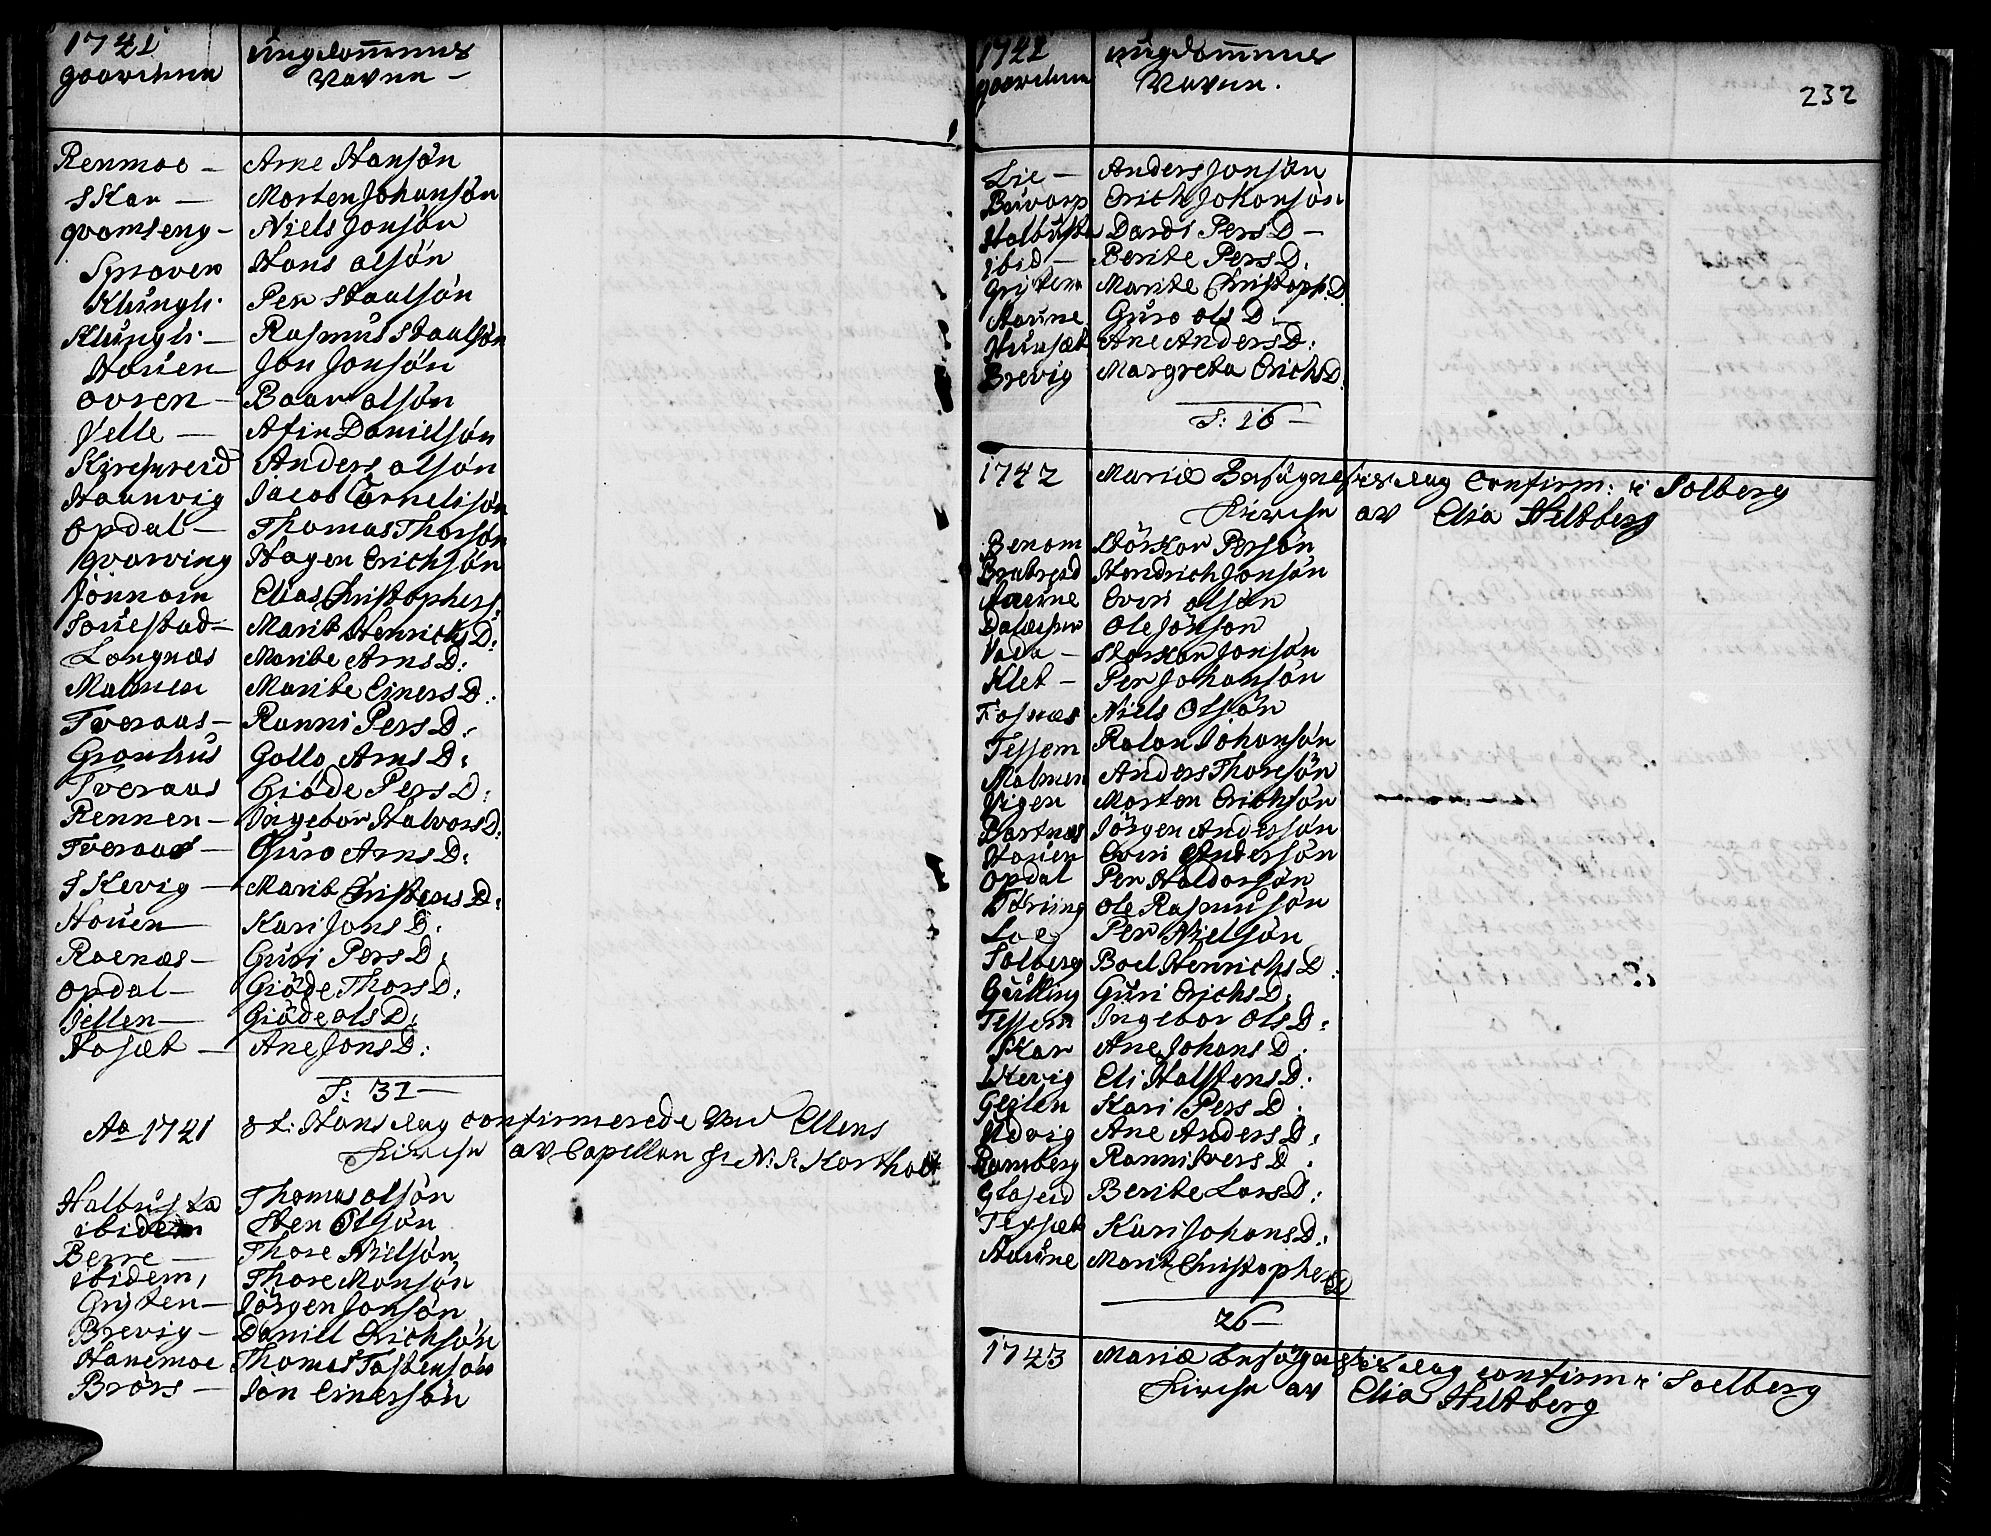 1741 Ungdommens
Gaardenn Navnn –
Renmoe – Arne Hansøn
Skar – Morten Johansøn
qvamseng – Niels Jonsøn
Hans olsøn
Klüngli Per Staalsøn
Klüngli – Rasmus Staalsøn
Houen – Jon Jonsøn
ovren – Baar olsøn
Velle – Afin Danielsøn
Anders olsøn
Jacob Cornelisøn
opdal – Thomas Thorsøn
qvarving Hagen Erichsøn
Elias Christophers:
Marit Henrichs D:
Langnæs Marite Arns D:
Malmen Marite Einers D:
Tveraas – Ranni Pers D:
Gronhus Gollo Arns D:
Tveraas Giöde Pers D:
Rennen – Ingebor Halvors D:
Tveraas – Guro Arns D:
Skevig – Marit Christens D:
Houen – Kari Jons D:
Raenæs – Guri Pers D:
opdal – Giöde Thors D:
Giöde ols D:
Hasæt – Ane Jons D:
S: 31 –
Ao 1741 St: Hans dag confirmerede ved Ellens
Kirche av Capellan Hr N: S: Kortholt
Halbusta Thomas olsøn
ibidem Sten Olsøn
Berre – Thore Nielsøn
ibidem, Thore Monsøn
Grÿten – Jörgen Jonsøn
Brevig – Daniel Erichsøn
Hanemoe Thomas Tostensøn
Brørs – Jön Einersøn
1741 ungdommens
gaardenn Navnn.
232
Lie – Anders Jonsøn
Buvarp Erich Johansøn
Halbusta Dardi Pers D –
ibid – Berite Pers D.
Grÿten Marite Christoph: D.
Haune Guro ols D –
Hunsæt Ane Anders D:
Brevig Margreta Erichs D:
S: 16 –
1742 Mariæ Besøgnelses dag Confirm: i Solberg
Kirche av Elia Heltberg
Benom Störkar Persøn
Hendrich Jonsøn
Haune Even olsøn
Ole Jönsøn
Vada – Storkar Jonsøn
Klet – Per Johansøn
Fosnæs Niels Olsøn
Tessem Roland Johansøn
Malmen Anders Thoresøn
Vigen Morten Erichsøn
Bartnæs Jörgen Andersøn
Houen Even Andersøn
opdal Per Haldorsøn
Ole Rasmusøn
Loe Per Nielsøn
Solberg Boel Henrichs D:
Gulling Guri Erichs D:
Tessem Ingebor Ols D:
Skar Ane Johans D:
Skevig Eli Halstens D:
Kari Pers D:
Udvig Ane Anders D:
Ramberg Ranni Ivers D.
Berite Lars D:
Kari Johans D:
Haune Marit Christophers D
26 –
1743 Mariæ besøgelses dag confirm i Soelberg
Kirche av Elia Heltberg